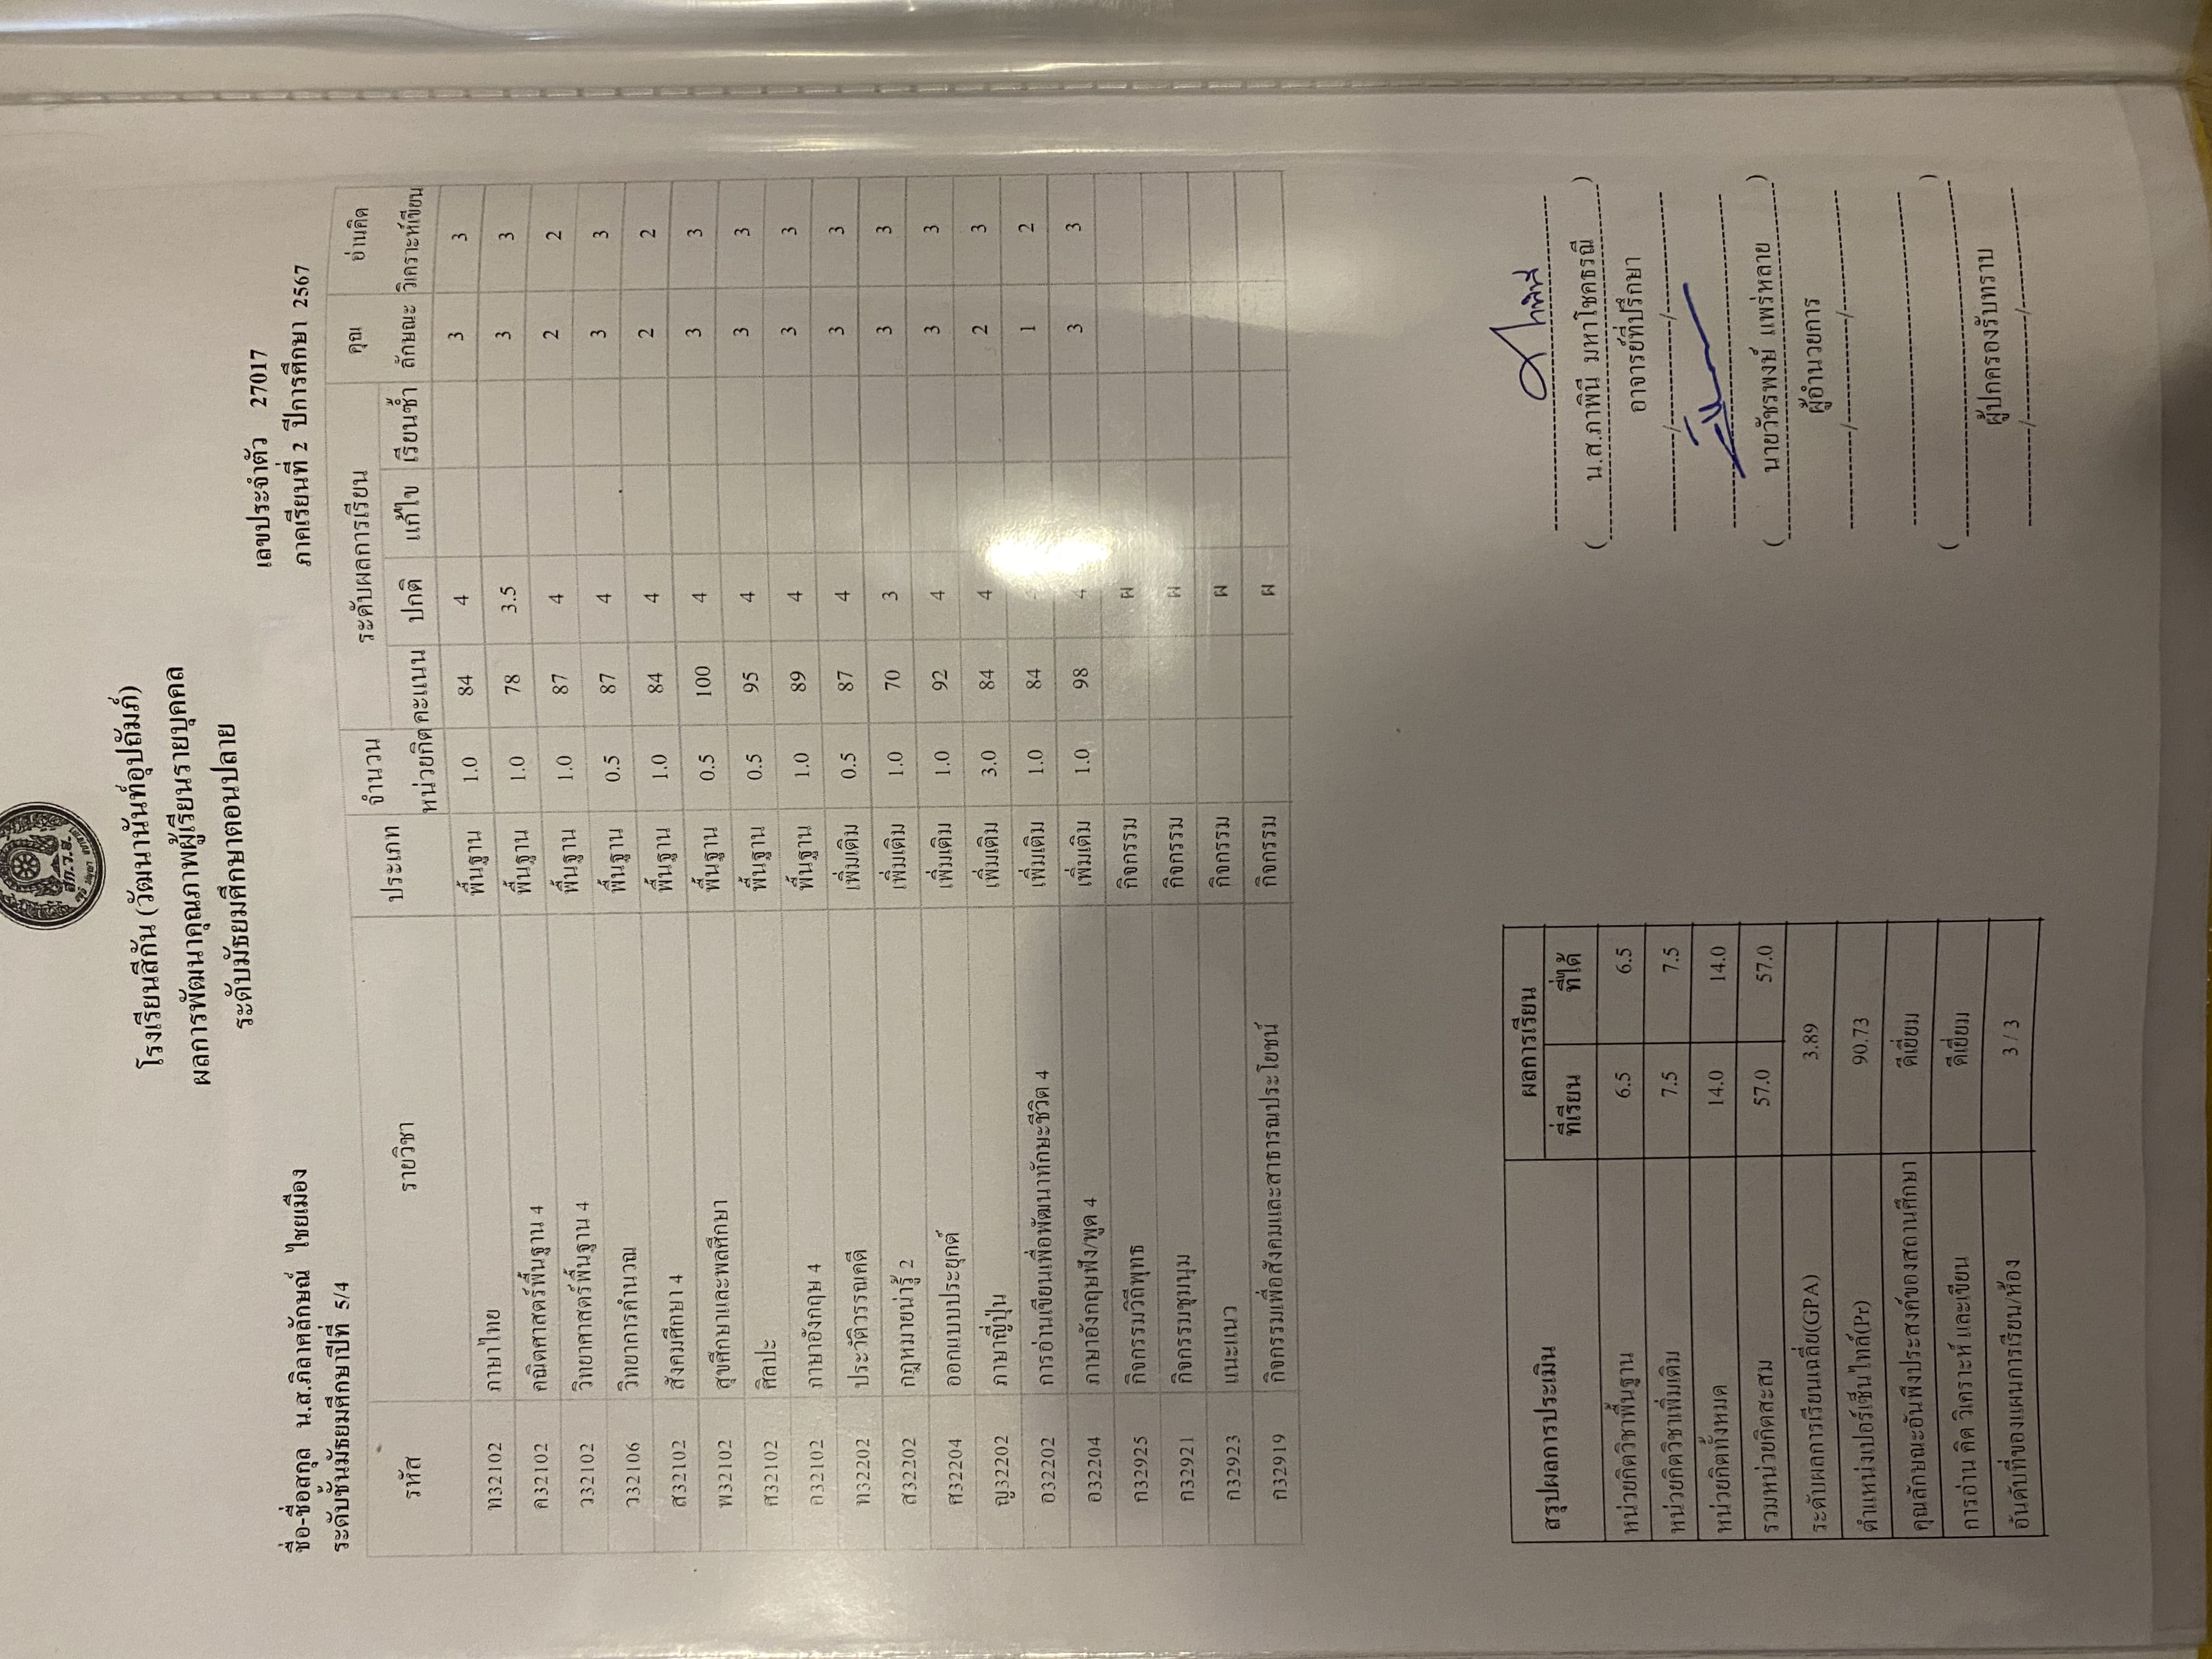 โรงเรียนสีกัน (วัฒนานันท์อุปถัมภ์)
ผลการพัฒนาคุณภาพผู้เรียนรายบุคคล
ระดับมัธยมศึกษาตอนปลาย
ชื่อ-ชื่อสกุล น.ส.ภิลาคลักษณ์ ไชยเมือง เลขประจำตัว 27017
ระดับชั้นมัธยมศึกษาปีที่ 5/4 ภาคเรียนที่ 2 ปีการศึกษา 2567
รหัส รายวิชา ประเภท จำนวน ระดับผลการเรียน คุณ อ่านคิด
หน่วยกิต คะแนน ปกติ แก้ไข เรียนซ้ำ ลักษณะ วิเคราะห์เขียน
ท32102 ภาษาไทย พื้นฐาน 1.0 84 4 3 3
ค32102 คณิตศาสตร์พื้นฐาน 4 พื้นฐาน 1.0 78 3.5 3 3
ว32102 วิทยาศาสตร์พื้นฐาน 4 พื้นฐาน 1.0 87 4 2 2
ว32106 วิทยาการคำนวณ พื้นฐาน 0.5 87 4 3 3
ส32102 สังคมศึกษา 4 พื้นฐาน 1.0 84 4 2 2
พ32102 สุขศึกษาและพลศึกษา พื้นฐาน 0.5 100 4 3 3
ศ32102 ศิลปะ พื้นฐาน 0.5 95 4 3 3
อ32102 ภาษาอังกฤษ 4 พื้นฐาน 1.0 89 4 3 3
ท32202 ประวัติวรรณคดี เพิ่มเติม 0.5 87 4 3 3
ส32202 กฎหมายน่ารู้ 2 เพิ่มเติม 1.0 70 3 3 3
ศ32204 ออกแบบประยุกต์ เพิ่มเติม 1.0 92 4 3 3
ญ32202 ภาษาญี่ปุ่น เพิ่มเติม 3.0 84 4 2 3
อ32202 การอ่านเขียนเพื่อพัฒนาทักษะชีวิต 4 เพิ่มเติม 1.0 84 1 2
อ32204 ภาษาอังกฤษฟัง/พูด 4 เพิ่มเติม 1.0 98 4 3 3
ก32925 กิจกรรมวิถีพุทธ กิจกรรม ผ
ก32921 กิจกรรมชุมนุม กิจกรรม ผ
ก32923 แนะแนว กิจกรรม ผ
ก32919 กิจกรรมเพื่อสังคมและสาธารณประโยชน์ กิจกรรม ผ
สรุปผลการประเมิน ผลการเรียน
ที่เรียน ที่ได้
หน่วยกิตวิชาพื้นฐาน 6.5 6.5
หน่วยกิตวิชาเพิ่มเติม 7.5 7.5
หน่วยกิตทั้งหมด 14.0 14.0
รวมหน่วยกิตสะสม 57.0 57.0
ระดับผลการเรียนเฉลี่ย(GPA) 3.89
ตำแหน่งเปอร์เซ็นไทล์(Pr) 90.73
คุณลักษณะอันพึงประสงค์ของสถานศึกษา ดีเยี่ยม
การอ่าน คิด วิเคราะห์ และเขียน ดีเยี่ยม
อันดับที่ของแผนการเรียน/ห้อง 3 / 3
( น.ส.ภาพินี มหาโชคธรณี )
อาจารย์ที่ปรึกษา
( นายวัชรพงษ์ แพร่หลาย )
ผู้อำนวยการ
( )
ผู้ปกครองรับทราบ